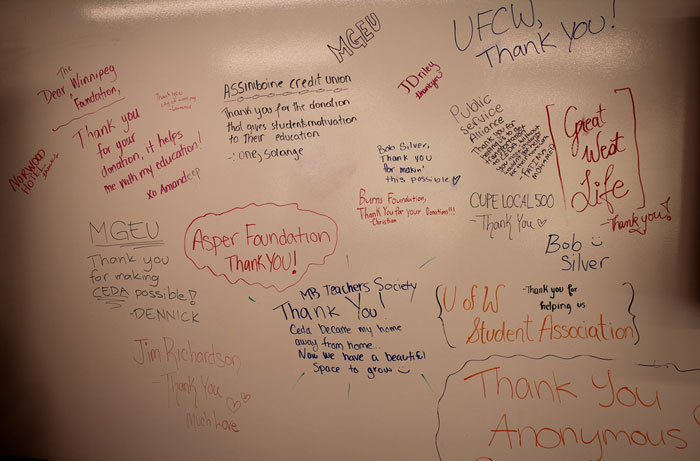 The
Dear Winnipeg
Foundation,
Thank you
for your
donation, it helps
me with my education!
xo Amandeep
Thank you
city of winnipeg
NORWOOD
HOTEL
MGEU
ASSiniboine credit union
Thank you for the donation
that gives students motivation
to Their education
-: onesolange
JDnley
Thank you
UFCW,
Thank you!
Bob Silver,
Thank you
for makin'
this possible
Burns Foundation,
Thank You for your Donations!!!
-Christian
Public
Service
Alliance
Thank you for
helping us to get
Great
West
Life
-Thank you!
CUPE LOCAL 500
-Thank You
Bob
Silver
MGEU
Thank you
for making
CEDA possible!
-DENNICK
Asper Foundation
THANK YOU!
MB Teachers Society
Thank You!
Ceda became my home
away from home...
Now we have a beautiful
Space to grow
U of W
-Thank you for
helping us
Student Association
Jim Richardson
-Thank You
Much Love
Thank You
Anonymous